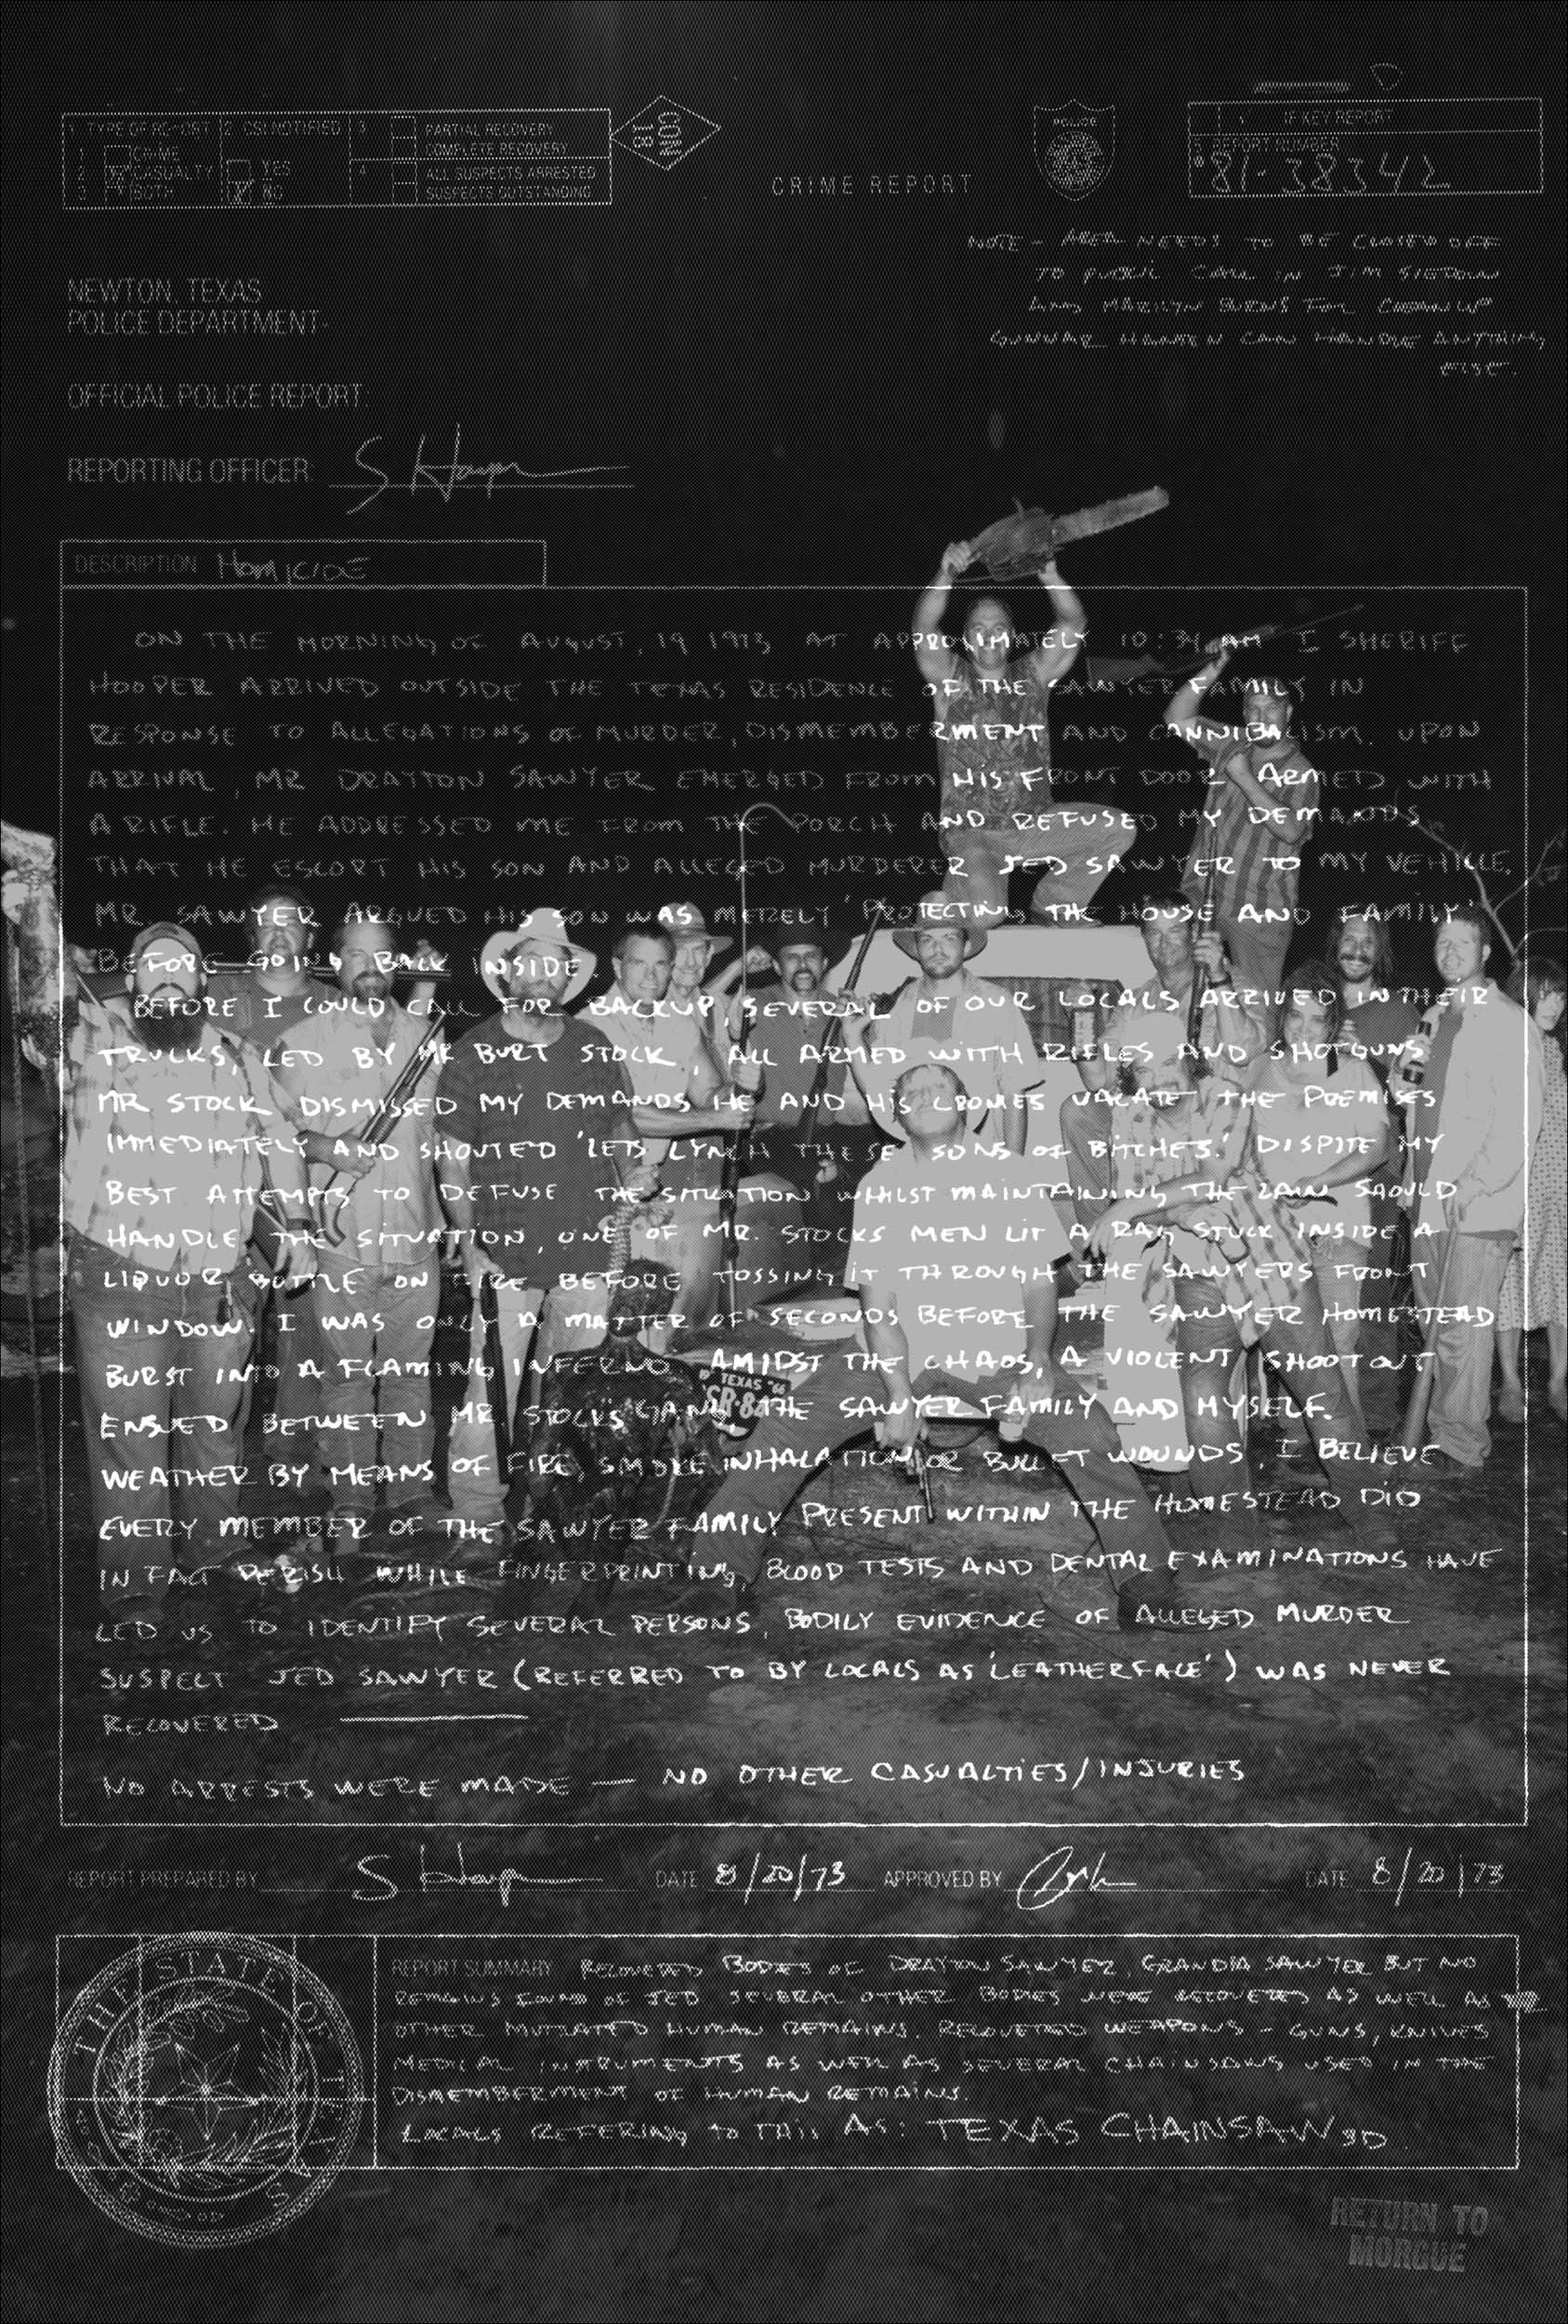 1 TYPE OF REPORT 2 CSI NOTIFIED 3 PARTIAL RECOVERY
COMPLETE RECOVERY
1 CRIME
2 CASUALTY YES 4 ALL SUSPECTS ARRESTED
3 BOTH NO SUSPECTS OUTSTANDING
CON
18
CRIME REPORT
POLICE
IF KEY REPORT
5 REPORT NUMBER
81-38342
NOTE - AREA NEEDS TO BE CLOSED OFF
TO PUBLIC CALL IN JIM SIEDOW
AND MARILYN BURNS FOR CLEANUP
GUNNAR HANSEN CAN HANDLE ANYTHING
ELSE.
NEWTON, TEXAS
POLICE DEPARTMENT-
OFFICIAL POLICE REPORT:
REPORTING OFFICER: S Hooper
DESCRIPTION: HOMICIDE
ON THE MORNING OF AUGUST, 19 1973 AT APPROXIMATELY 10:34 AM I SHERIFF
HOOPER ARRIVED OUTSIDE THE TEXAS RESIDENCE OF THE SAWYER FAMILY IN
RESPONSE TO ALLEGATIONS OF MURDER, DISMEMBERMENT AND CANNIBALISM. UPON
ARRIVAL, MR DRAYTON SAWYER EMERGED FROM HIS FRONT DOOR ARMED WITH
A RIFLE. HE ADDRESSED ME FROM THE PORCH AND REFUSED MY DEMANDS
THAT HE ESCORT HIS SON AND ALLEGED MURDERER JED SAWYER TO MY VEHICLE.
MR. SAWYER ARGUED HIS SON WAS MERELY 'PROTECTING THE HOUSE AND FAMILY'
BEFORE GOING BACK INSIDE.
BEFORE I COULD CALL FOR BACKUP, SEVERAL OF OUR LOCALS ARRIVED IN THEIR
TRUCKS, LED BY MR BURT STOCK, ALL ARMED WITH RIFLES AND SHOTGUNS
MR STOCK DISMISSED MY DEMANDS HE AND HIS CRONIES VACATE THE PREMISES
IMMEDIATELY AND SHOUTED 'LETS LYNCH THESE SONS OF BITCHES.' DISPITE MY
BEST ATTEMPTS TO DEFUSE THE SITUATION WHILST MAINTAINING THE LAW SHOULD
HANDLE THE SITUATION, ONE OF MR. STOCKS MEN LIT A RAG STUCK INSIDE A
LIQUOR BOTTLE ON FIRE BEFORE TOSSING IT THROUGH THE SAWYERS FRONT
WINDOW. I WAS ONLY A MATTER OF SECONDS BEFORE THE SAWYER HOMESTEAD
BURST INTO A FLAMING INFERNO. AMIDST THE CHAOS, A VIOLENT SHOOTOUT
ENSUED BETWEEN MR. STOCKS GANG THE SAWYER FAMILY AND MYSELF.
WEATHER BY MEANS OF FIRE, SMOKE INHALATION OR BULLET WOUNDS, I BELIEVE
EVERY MEMBER OF THE SAWYER FAMILY PRESENT WITHIN THE HOMESTEAD DID
IN FACT PERISH WHILE FINGERPRINTING, BLOOD TESTS AND DENTAL EXAMINATIONS HAVE
LED US TO IDENTIFY SEVERAL PERSONS, BODILY EVIDENCE OF ALLEGED MURDER
SUSPECT JED SAWYER (REFERRED TO BY LOCALS AS 'LEATHERFACE') WAS NEVER
RECOVERED
NO ARRESTS WERE MADE — NO OTHER CASUALTIES/INJURIES
TEXAS 66
REPORT PREPARED BY S Hooper DATE 8/20/73 APPROVED BY DATE 8/20/73
THE STATE OF TEXAS
REPORT SUMMARY RECOVERED BODIES OF DRAYTON SAWYER, GRANDPA SAWYER BUT NO
REMAINS FOUND OF JED SEVERAL OTHER BODIES WERE RECOVERED AS WELL AS
OTHER MUTILATED HUMAN REMAINS. RECOVERED WEAPONS - GUNS, KNIVES
MEDICAL INSTRUMENTS AS WELL AS SEVERAL CHAINSAWS USED IN THE
DISMEMBERMENT OF HUMAN REMAINS.
LOCALS REFERING TO THIS AS: TEXAS CHAINSAW 3D.
RETURN TO
MORGUE